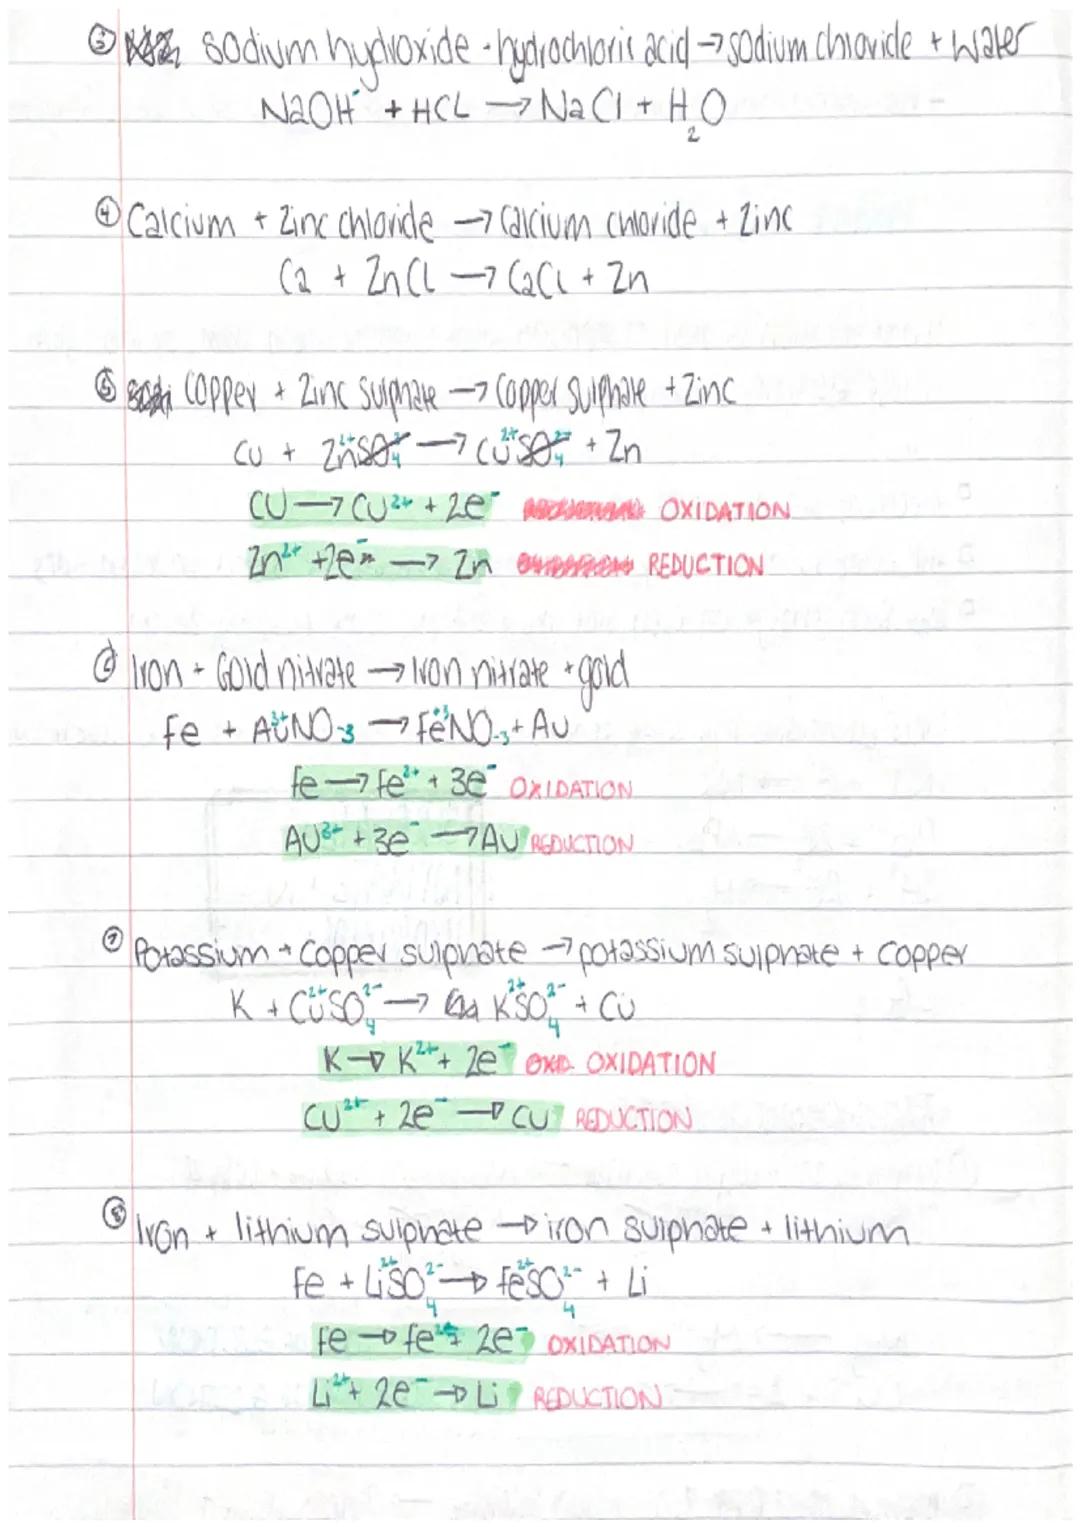 ③ sodium hydroxide + hydrochloric acid → sodium chloride + water
NaOH + HCL → NaCl + H₂O
④ Calcium + Zinc chloride → Calcium chloride + Zinc
Ca + ZnCl → CaCl + Zn
⑤ Copper + Zinc sulphate → Copper sulphate + Zinc
Cu + Zn²⁺SO₄²⁻ → Cu²⁺SO₄²⁻ + Zn
CU → CU²⁺ + 2e⁻ OXIDATION
Zn²⁺ + 2e⁻ → Zn REDUCTION
⑥ Iron + Gold nitrate → Iron nitrate + gold
Fe + AU³⁺NO₋₃ → Fe⁺³NO₋₃ + AU
Fe → Fe²⁺ + 3e⁻ OXIDATION
AU³⁺ + 3e⁻ → AU REDUCTION
⑦ Potassium + Copper sulphate → potassium sulphate + copper
K + CU²⁺SO₄²⁻ → K²⁺SO₄²⁻ + CU
K → K²⁺ + 2e⁻ OXIDATION
CU²⁺ + 2e⁻ → CU REDUCTION
⑧ Iron + lithium sulphate → iron sulphate + lithium
Fe + Li²⁺SO₄²⁻ → Fe²⁺SO₄²⁻ + Li
Fe → Fe²⁺ + 2e⁻ OXIDATION
Li²⁺ + 2e⁻ → Li REDUCTION